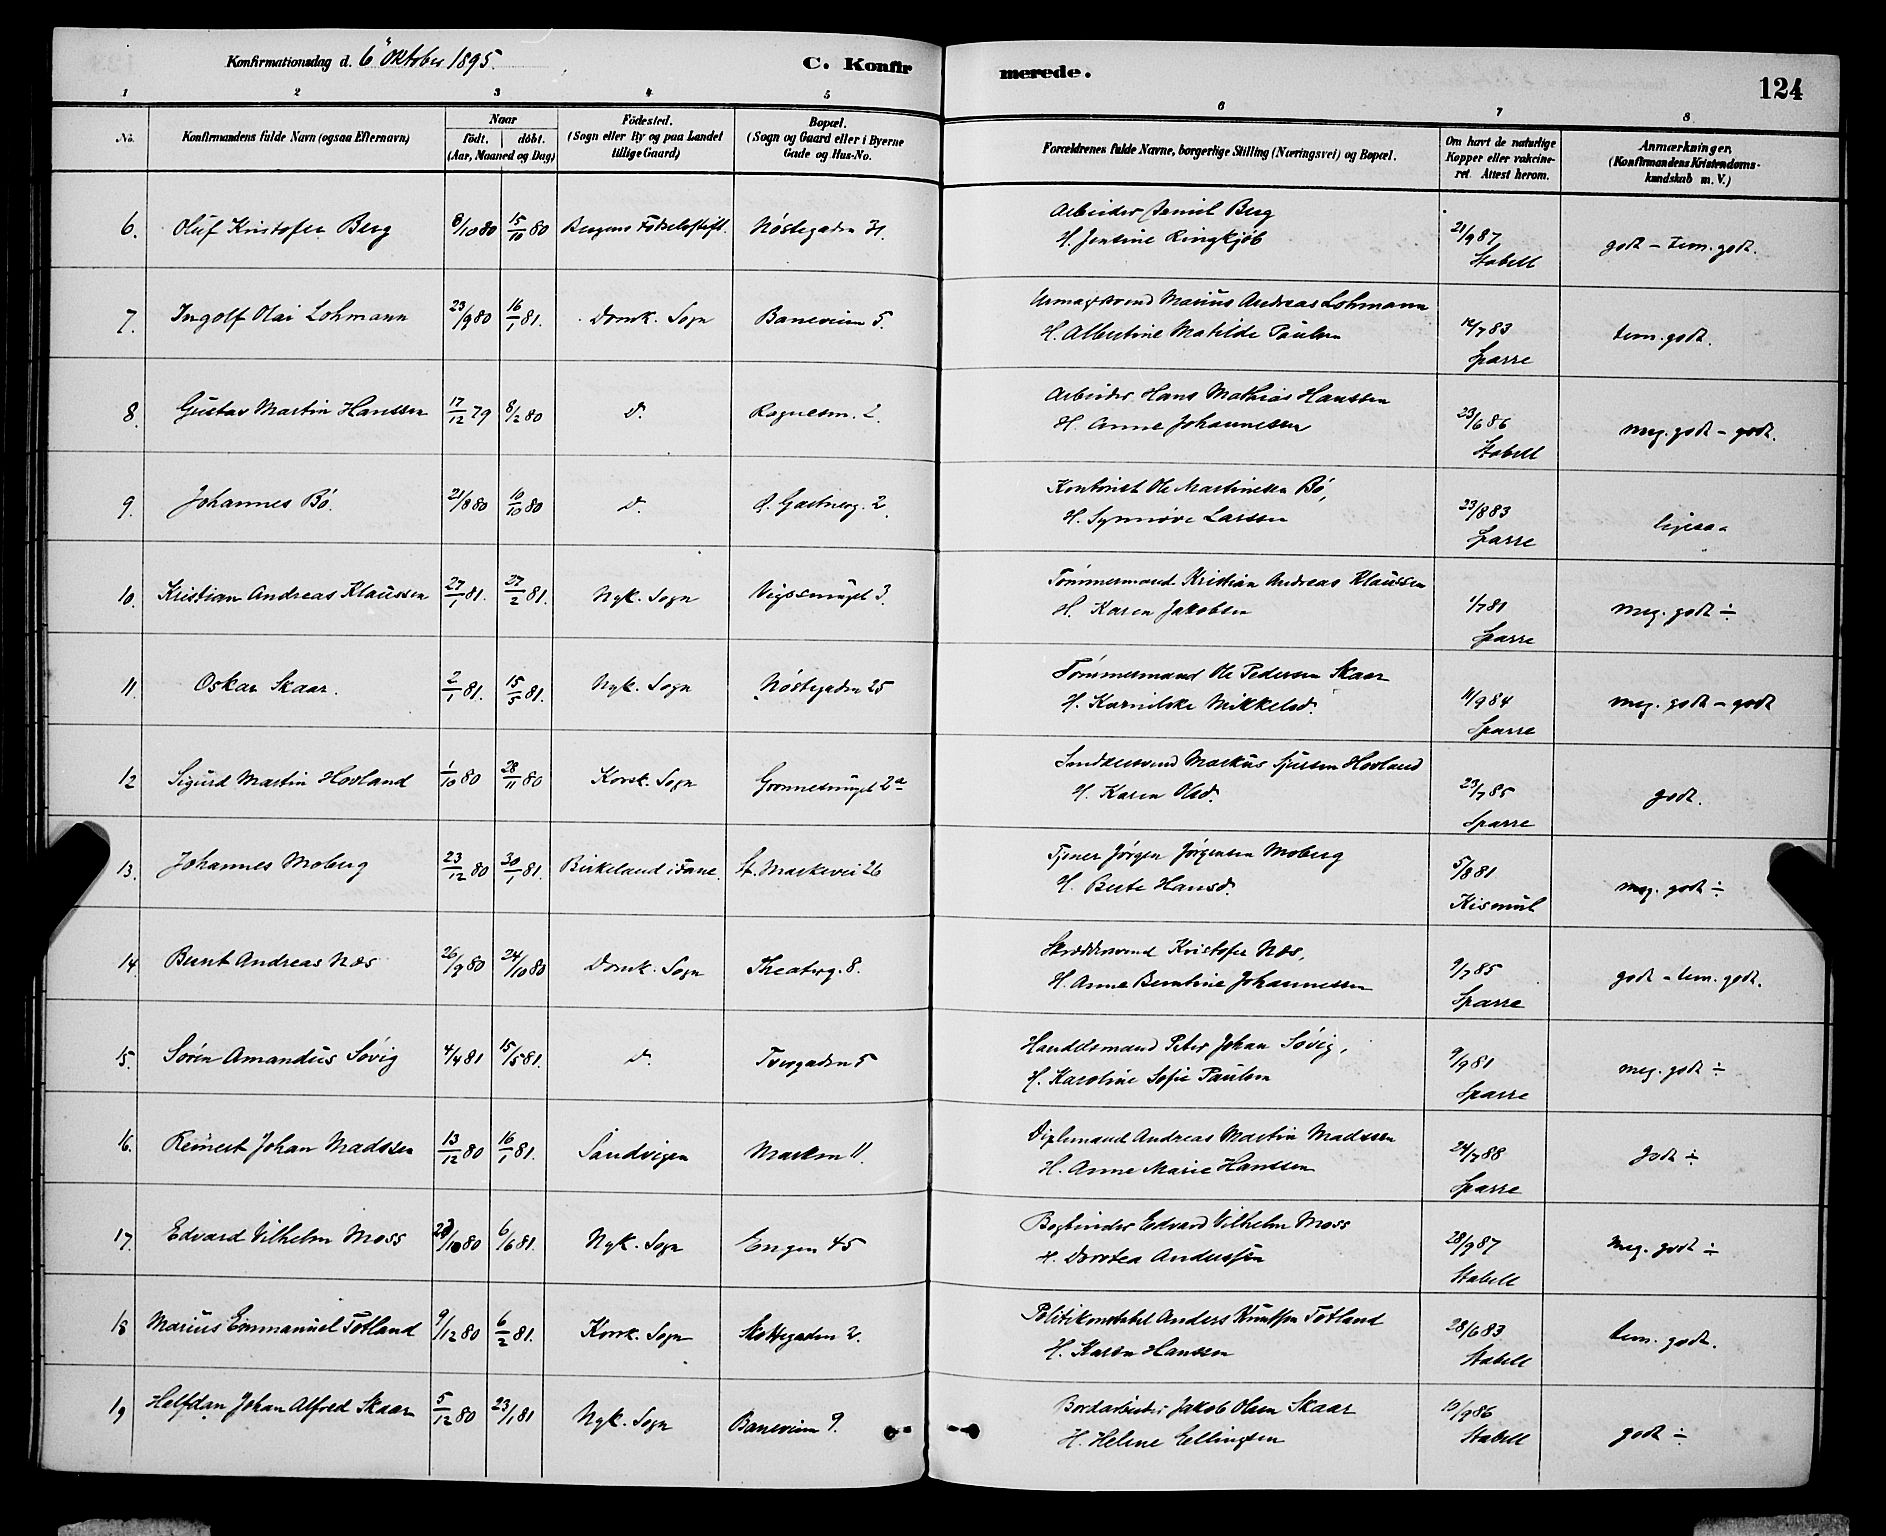 Konfirmationsdag d. 6' Oktober 1895. C. Konfirmerede. 124
1 2 3 4 5 6 7 8
No. Konfirmandens fulde Navn (ogsaa Efternavn) Naar födt. döbt. (Aar, Maaned og Dag) Födested. (Sogn eller By og paa Landet tillige Gaard) Bopæl. (Sogn og Gaard eller i Byerne Gade og Hus-No. Forældrenes fulde Navne, borgerlige Stilling (Næringsvei) og Bopæl. Om havt de naturlige Kopper eller vakcineret. Attest herom. Anmærkninger. (Konfirmandens Kristendomskundskab m. V.)
6. Oluf Kristofer Berg 8/10 80 15/10 80 Bergens Fødselsstift. Nöstegaden 71.
Arbeider Daniel Berg
H. Jensine Ringkjöb
21/9 87 Stabell
godt - tem. godt.
7. Ingolf Olai Lohmann 23/9 80 16/1 81. Domk. Sogn Baneveien 5.
Marius Andreas Lohmann
H. Albertine Matilde Paulsen
12/7 83 Sparre
tem. godt.
8. Gustav Martin Hanssen 17/12 79 8/2 80 d. Ragnesm. 2.
Arbeider Hans Mathias Hanssen
H. Anne Johannessen
23/6 86 Stabell
meg. godt - godt.
9. Johannes Bö. 21/8 80 10/10 80 d. Gartnerg. 2.
Kontorist Ole Martinessen Bö,
H. Synnöve Larssen
23/8 83 Sparre
ligesaa
10. Kristian Andreas Klaussen 27/1 81. 27/2 81. Nyk. Sogn Vegssmuget 3.
Tömmermand Kristian Andreas Klaussen
H. Karen Jakobsen
1/7 81 Sparre
meg. godt ÷
11. Oskar Skaar. 2/1 81. 15/5 81. Nyk. Sogn Nöstegaden 25
Tömmermand Ole Pedersen Skaar
H. Mikkelsd.
11/9 84 Sparre
meg. godt - godt
12 Sigurd Martin Hovland 1/10 80 28/11 80 Korsk. Sogn Grönnesmuget 2a
Markus Sjursen Hovland
H. Karen Olsd.
23/7 85 Sparre
godt.
13. Johannes Moberg 23/12 80 30/1 81. Birkeland i Fane. St. Markevei 26
Tjener Jörgen Jörgensen Moberg
H. Berte Hansd.
5/8 81 Kismul
meg. godt ÷
14 Bernt Andreas Næs 26/9 80 24/10 80 Domk. Sogn Theaterg. 8.
Skræddersvend Kristofer Næs,
H. Anne Berntine Johannessen
9/7 85 Sparre
godt - tem. godt.
15. Sören Amandus Sövig 4/4 81 15/5 81. d. Tvergaden 5
Handelsmand Peter Johan Sövig,
H. Karoline Sofie Paulsen
9/9 81 Sparre
meg. godt ÷
16. Reinert Johan Madssen 13/12 80 16/1 81. Sandvigen Marken 11.
Andreas Martin Madssen
H. Anne Marie Hanssen
24/7 88 Sparre
godt ÷
17. Edvard Vilhelm Moss 20/10 80 6/6 81. Nyk. Sogn Engen 45
Bogbinder Edvard Vilhelm Moss
H. Dorotea Anderssen
28/9 87 Stabell
Meg. godt ÷
18 Marius Emmanuel Totland 9/12 80 6/2 81. Korsk. Sogn Skottegaden 2.
Politikonstabel Anders Knutssen Totland
H. Karen Hanssen
28/6 83 Stabell
tem. godt.
19 Halfdan Johan Alfred Skaar 5/12 80 23/1 81 Nyk. Sogn Baneveien 9.
Bordarbeider Jakob Olsen Skaar
H. Helene Ellingsen
13/9 86 Stabell
godt ÷